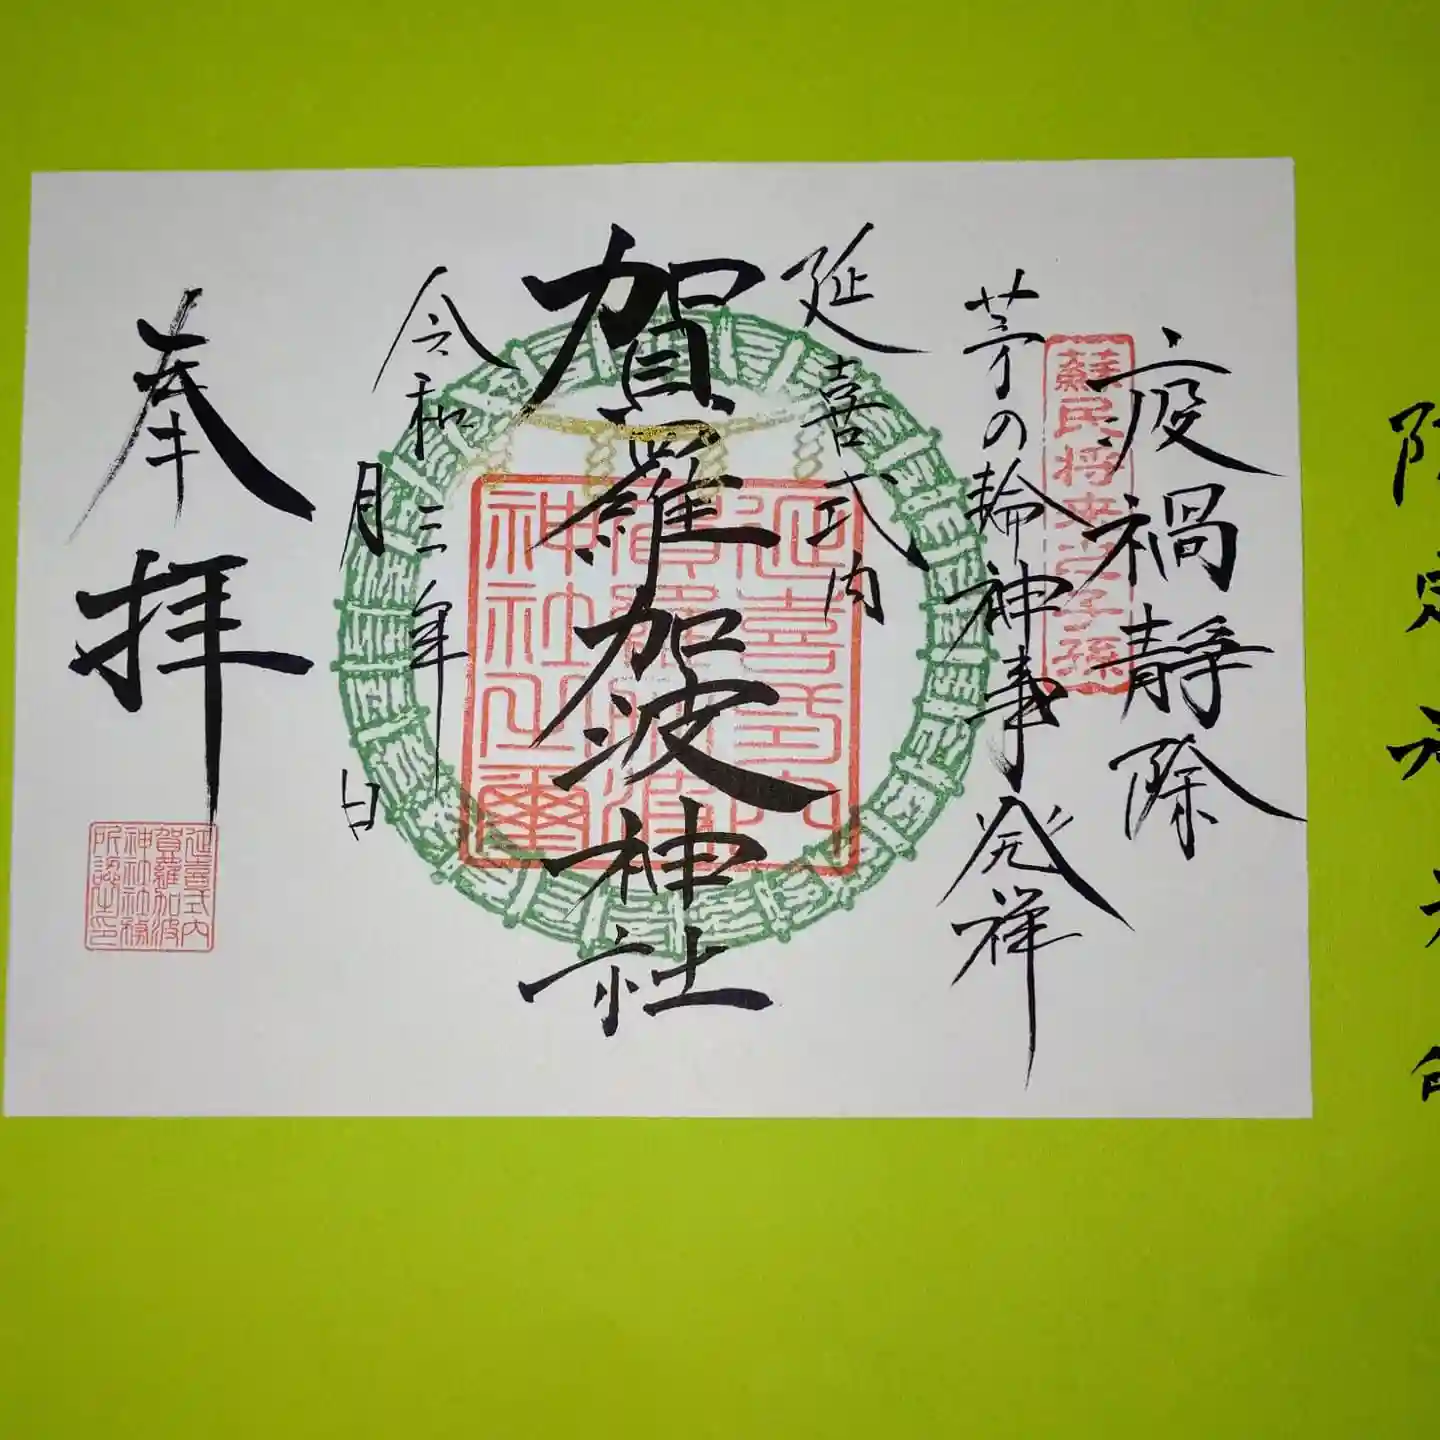 疫禍静除
蘇民将来之子孫
茅の輪神事発祥
延喜式内
賀羅加波神社
延喜式内
賀羅加波
神社之璽
令和三年
月 日
奉拝
延喜式内
賀羅加波
神社社務
所認之印